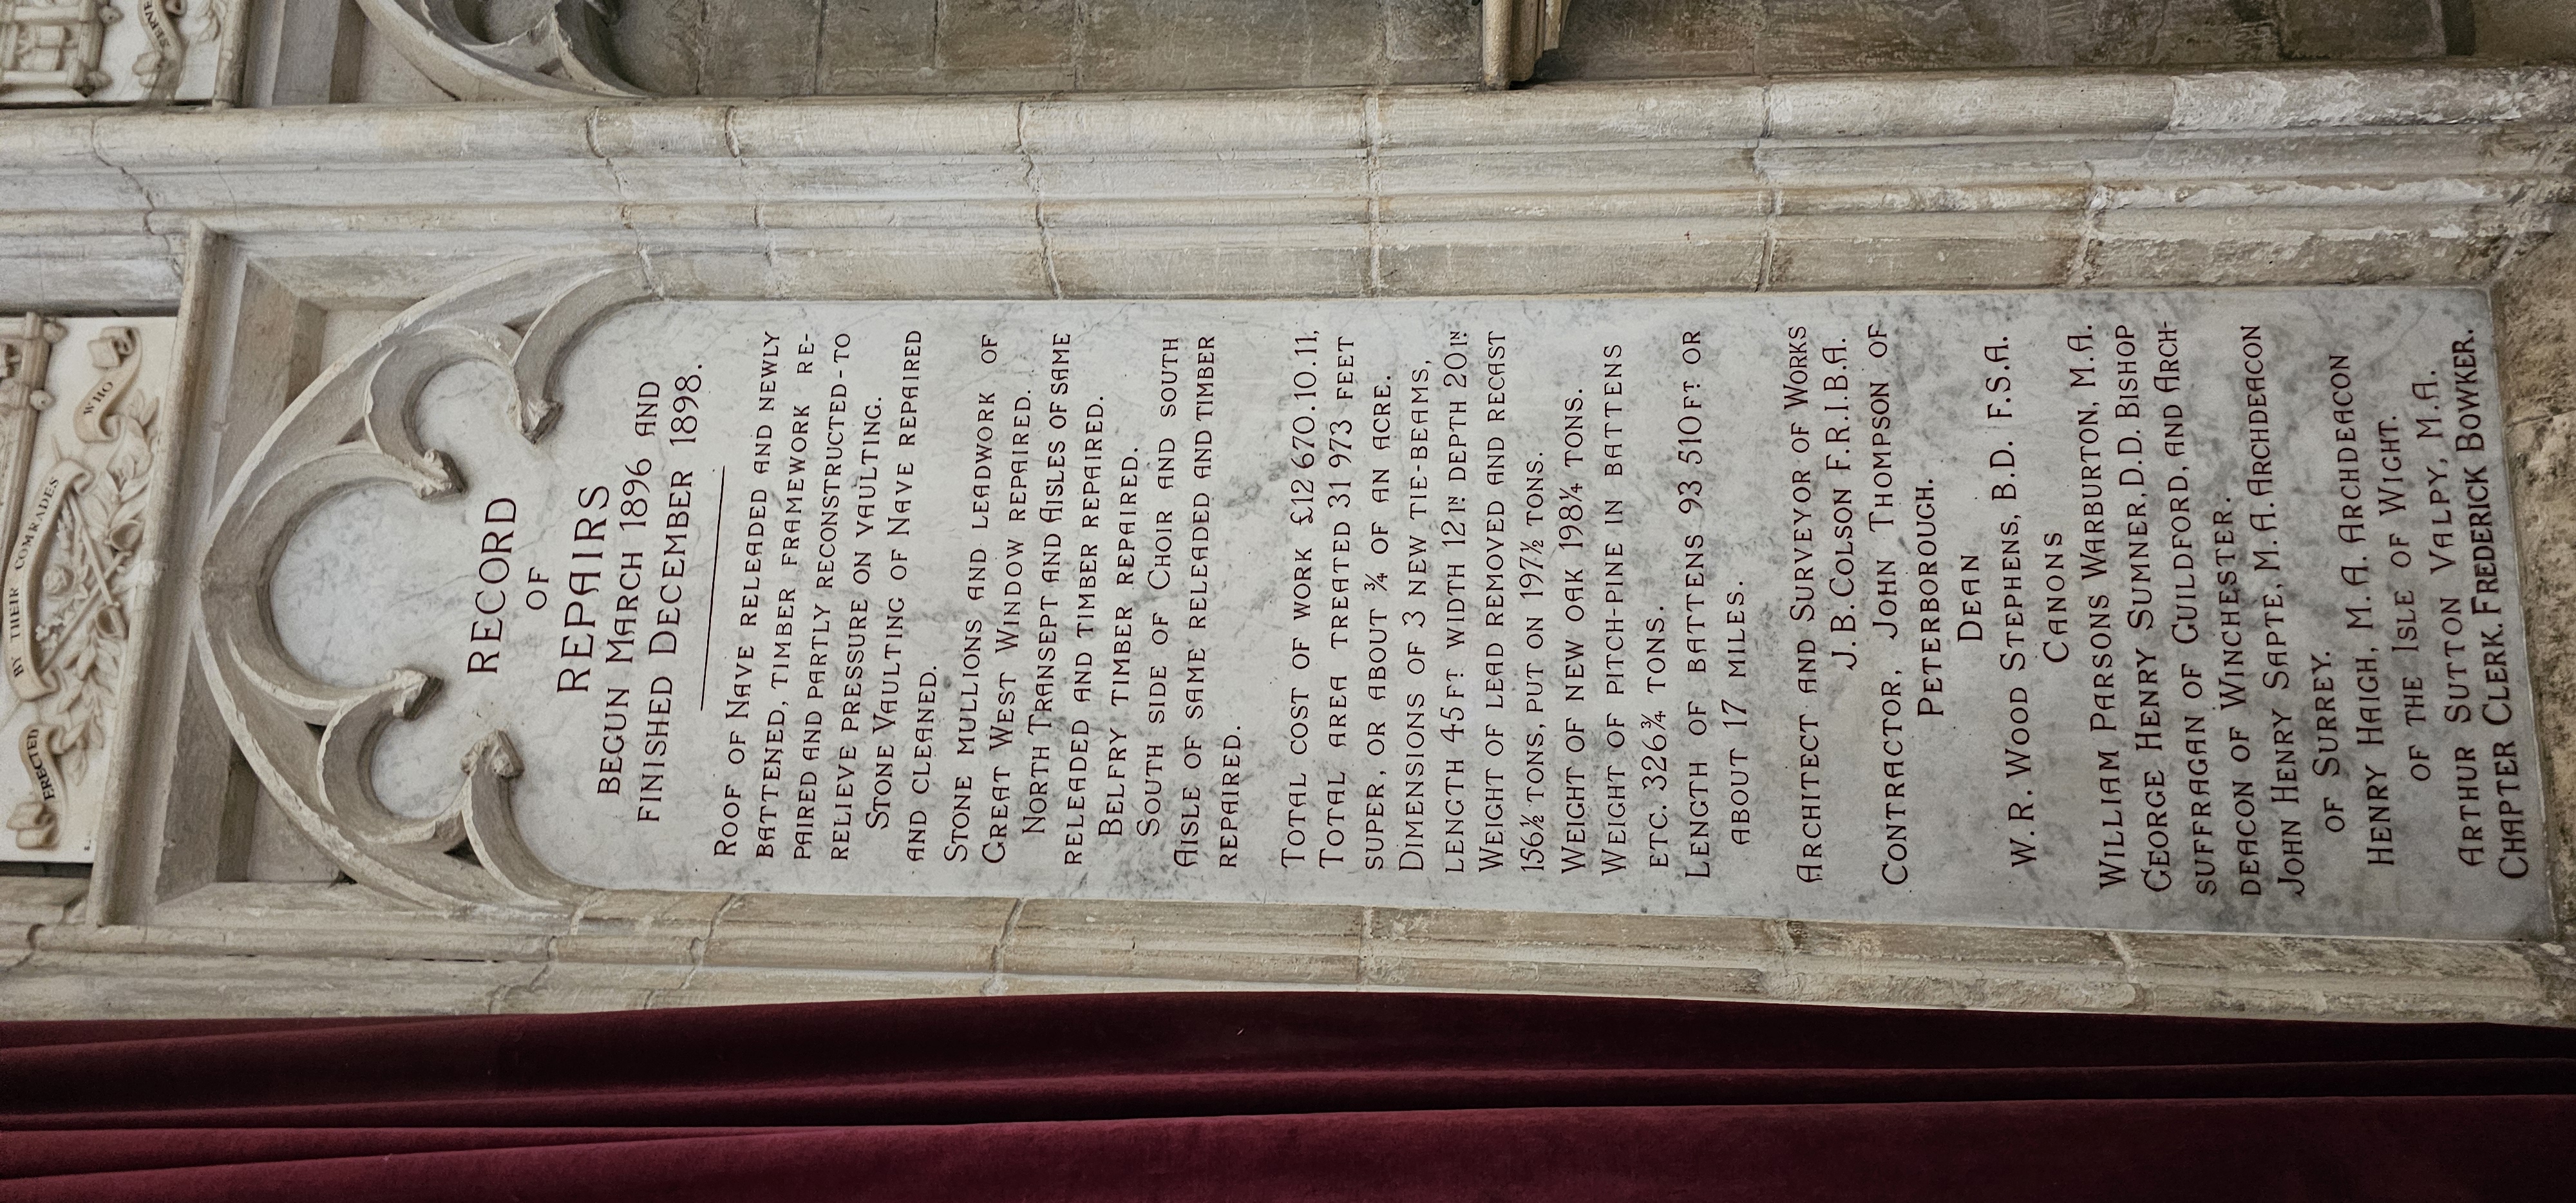 BY THEIR COMRADES
WHO
ERECTED
SERVE
RECORD
OF
REPAIRS
BEGUN MARCH 1896 AND
FINISHED DECEMBER 1898.
ROOF OF NAVE RELEADED AND NEWLY
BATTENED, TIMBER FRAMEWORK RE-
PAIRED AND PARTLY RECONSTRUCTED-TO
RELIEVE PRESSURE ON VAULTING.
STONE VAULTING OF NAVE REPAIRED
AND CLEANED.
STONE MULLIONS AND LEADWORK OF
GREAT WEST WINDOW REPAIRED.
NORTH TRANSEPT AND AISLES OF SAME
RELEADED AND TIMBER REPAIRED.
BELFRY TIMBER REPAIRED.
SOUTH SIDE OF CHOIR AND SOUTH
AISLE OF SAME RELEADED AND TIMBER
REPAIRED.
TOTAL COST OF WORK £12 670.10.11.
TOTAL AREA TREATED 31 973 FEET
SUPER, OR ABOUT ¾ OF AN ACRE.
DIMENSIONS OF 3 NEW TIE-BEAMS,
LENGTH 45FT WIDTH 12IN DEPTH 20IN
WEIGHT OF LEAD REMOVED AND RECAST
156½ TONS, PUT ON 197½ TONS.
WEIGHT OF NEW OAK 198¼ TONS.
WEIGHT OF PITCH-PINE IN BATTENS
ETC. 326¾ TONS.
LENGTH OF BATTENS 93 510FT OR
ABOUT 17 MILES.
ARCHITECT AND SURVEYOR OF WORKS
J.B.COLSON F.R.I.B.A.
CONTRACTOR, JOHN THOMPSON OF
PETERBOROUGH.
DEAN
W.R. WOOD STEPHENS, B.D. F.S.A.
CANONS
WILLIAM PARSONS WARBURTON, M.A.
GEORGE HENRY SUMNER, D.D. BISHOP
SUFFRAGAN OF GUILDFORD, AND ARCH-
DEACON OF WINCHESTER.
JOHN HENRY SAPTE, M.A. ARCHDEACON
OF SURREY.
HENRY HAIGH, M.A. ARCHDEACON
OF THE ISLE OF WIGHT.
ARTHUR SUTTON VALPY, M.A.
CHAPTER CLERK. FREDERICK BOWKER.